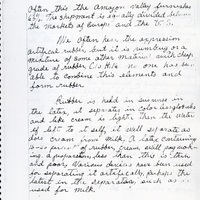 Often this the Amazon Valley furnishes
65%. The shipment is equally divided between
the markets of Europe and the U.S.
We often hear the expression
artifical rubber, but it is nothing or a
mixture of some other matter with cheap
grade of rubber C10H16 no one has been
able to combine this elements and
form rubber.
Rubber is held in dearies in
the latex, it separates in color as globules
and like cream is lighter than the water
if left to it self, it will separate as
does cream from milk. A latex containing
of rubber, cream will separate
ing, a progression, less than
and poorly devices been been used
for separating it artifically, perhaps the
latest is the separators, such as
used for milk.